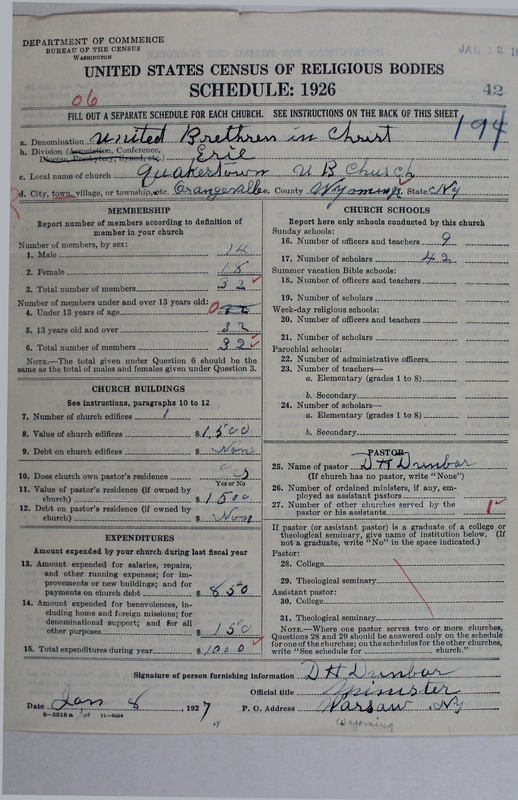 DEPARTMENT OF COMMERCE
BUREAU OF THE CENSUS
WASHINGTON
UNITED STATES CENSUS OF RELIGIOUS BODIES
SCHEDULE: 1926
42
06
FILL OUT A SEPARATE SCHEDULE FOR EACH CHURCH. SEE INSTRUCTIONS ON THE BACK OF THIS SHEET
194
a. Denomination United Brethren in Christ
b. Division (Association, Conference, Diocese, Presbytery, Synod, etc.) Erie
c. Local name of church Quakertown U B Church
d. City, town, village, or township, etc. Orangeville County Wyoming State NY
MEMBERSHIP
Report number of members according to definition of
member in your church
Number of members, by sex:
1. Male 14
2. Female 18
3. Total number of members 32
Number of members under and over 13 years old:
4. Under 13 years of age 0
5. 13 years old and over 32
6. Total number of members 32
NOTE.—The total given under Question 6 should be
same as the total of males and females given under Question 3.
CHURCH BUILDINGS
See instructions, paragraphs 10 to 12
7. Number of church edifices 1
8. Value of church edifices $1,500
9. Debt on church edifices $ Non
10. Does church own pastor's residence
Yes or No
11. Value of pastor's residence (if owned by
church) $1500
12. Debt on pastor's residence (if owned by
church) $ Non
EXPENDITURES
Amount expended by your church during last fiscal year
13. Amount expended for salaries, repairs,
and other running expenses; for im-
provements or new buildings; and for
payments on church debt $850
14. Amount expended for benevolences, in-
cluding home and foreign missions; for
denominational support; and for all
other purposes $150
15. Total expenditures during year $1000
CHURCH SCHOOLS
Report here only schools conducted by this church
Sunday schools:
16. Number of officers and teachers 9
17. Number of scholars 42
Summer vacation Bible schools:
18. Number of officers and teachers
19. Number of scholars
Week-day religious schools:
20. Number of officers and teachers
21. Number of scholars
Parochial schools:
22. Number of administrative officers
23. Number of teachers—
a. Elementary (grades 1 to 8)
b. Secondary
24. Number of scholars—
a. Elementary (grades 1 to 8)
b. Secondary
PASTOR
25. Name of pastor D H Dunbar
(If church has no pastor, write "None")
26. Number of ordained ministers, if any, em-
ployed as assistant pastors
27. Number of other churches served by the
pastor or his assistants 1
If pastor (or assistant pastor) is a graduate of a college or
theological seminary, give name of institution below. (If
not a graduate, write "No" in the space indicated.)
Pastor:
28. College
29. Theological seminary
Assistant pastor:
30. College
31. Theological seminary
NOTE.—Where one pastor serves two or more churches,
Questions 28 and 29 should be answered only on the schedule
for one of the churches; on the schedules for the other churches,
write "See schedule for church."
Signature of person furnishing information D H Dunbar
Official title Minister
Date Jan 8, 1927 P. O. Address Warsaw NY
Wyoming